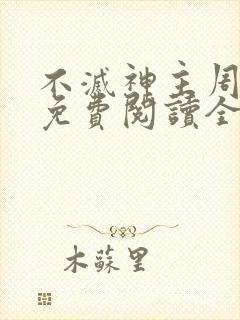 不滅神主周
免費閱讀全
木蘇里